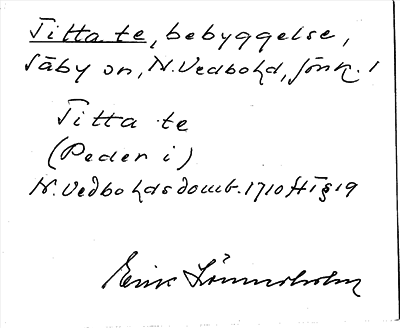 Titta te, bebyggelse,
Säby sn, N. Vedbo hd, Jönk. l
Titta te
(Peder i)
N. Vedbo hds domb. 1710 HT § 19
Erik Lönnerholm